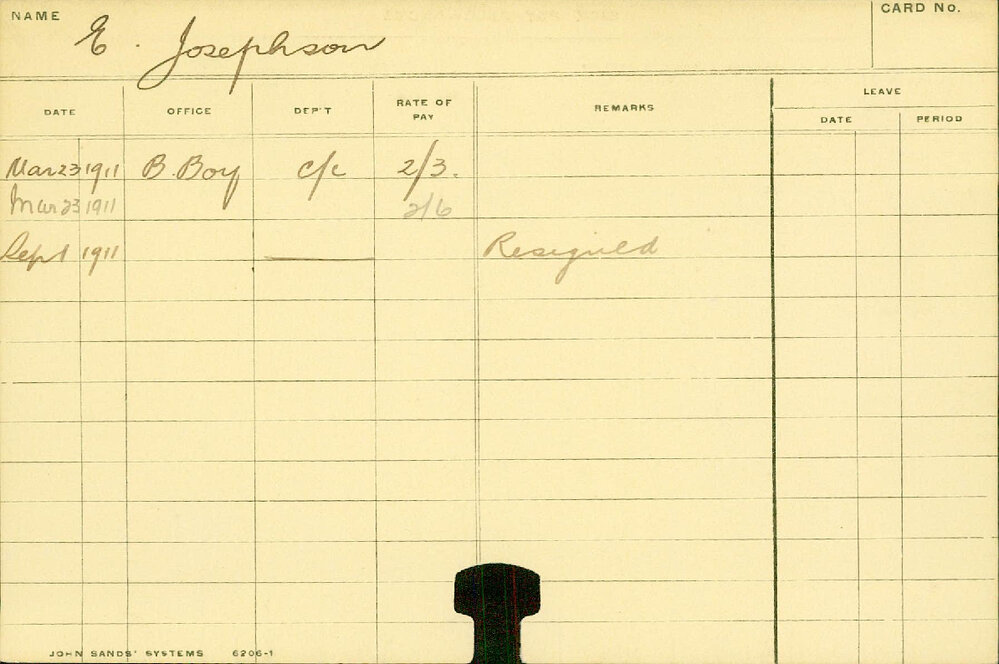 NAME E. Josephson CARD No.
DATE OFFICE DEP'T RATE OF PAY REMARKS LEAVE
DATE PERIOD
Mar 23 1911 B. Boy c/c 2/3.
Mar 23 1911 2/6
Sept 1911 Resigned
JOHN SANDS' SYSTEMS 6206-1